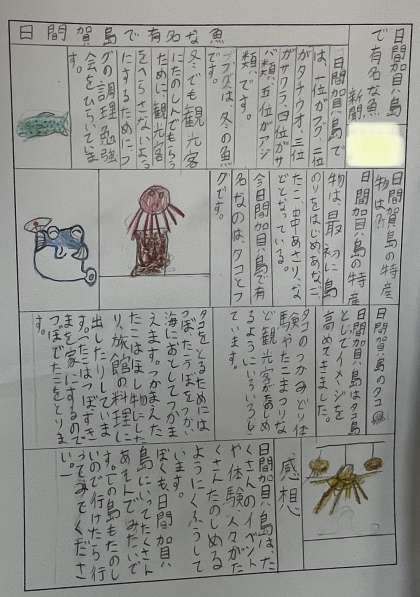 日間賀島で有名な魚
日間賀島
で有名な魚
新聞
日間賀島で
は、一位がフグ、二位
がタチウオ、三位
がサワラ、四位がサ
バ類、五位がアジ
類です。
フグは、冬の魚
冬でも観光客
にたのしんでもらう
ために、観光客
をへらさないよう
にするためにフ
グの調理勉強
会をひらいていま
す。
日間賀島の特産
物は
日間賀島の特産
物は、最初に島
のりをはじめあなご、
たこ、中あさりな
どとなっている。
今日間賀島で有
名なのは、タコとフ
グです。
日間賀島のタコ
日間賀島はタコ島
としてイメージを
高めてきました。
タコのつかみどり体
験やたこまつりな
ど観光客をあつめ
るようにいろいろし
ています。
タコをとるためには
つぼ
海におとしてつかま
えます。つかまえた
たこはほし物にした
り、旅館の料理に
出したりしていま
す。たこはつぼすき
まを家にするので
つぼでたこをとりま
す。
感想
日間賀島は、た
くさんのイベント
や体験人々がた
くさんたのしめる
ようにくふうして
います。
ぼくも日間賀
島にいってたくさん
あそんでみたいで
す。この島もたのし
いので行けたら行
ってみてくださ
い。